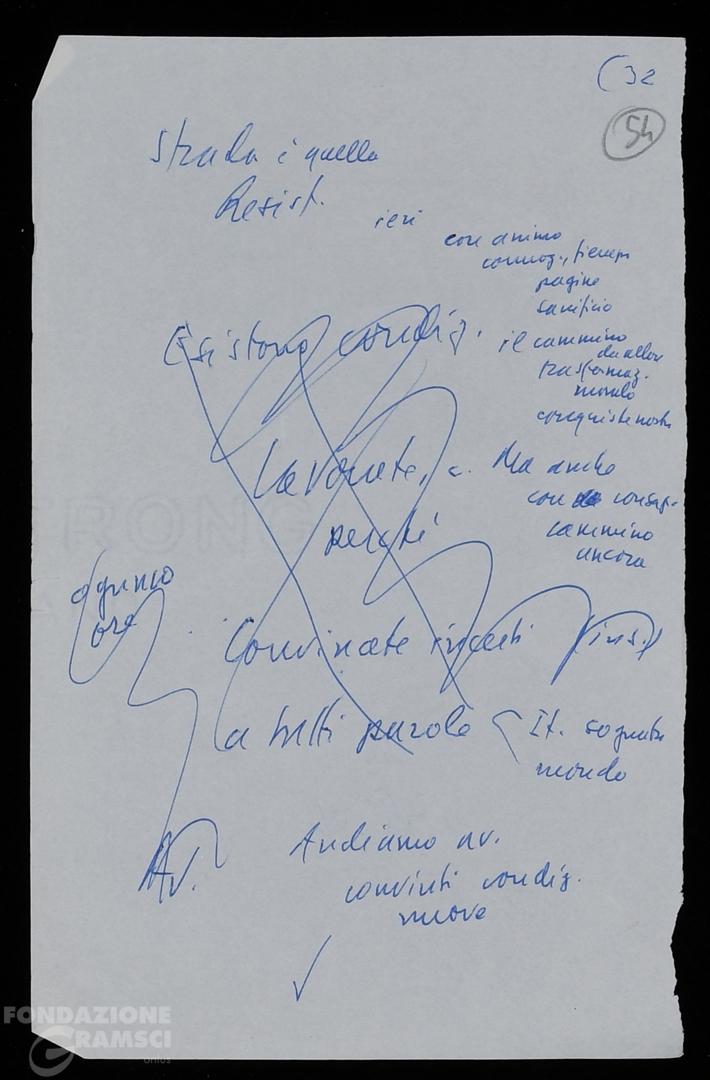 (32
54
Strada è quella
Resist.
ieri
con animo
pagine
sacrificio
Esistono condiz.
il cammino
da allora
trasformaz.
mondo
conquiste nostre
Lavorate,
Ma anche
con consap.
perché
cammino
ancora
ognuno
ora
Convincete incerti
a tutti parole
It. sognata
mondo
Av.
Andiamo av.
convinti condiz.
nuove
FONDAZIONE
GRAMSCI
onlus